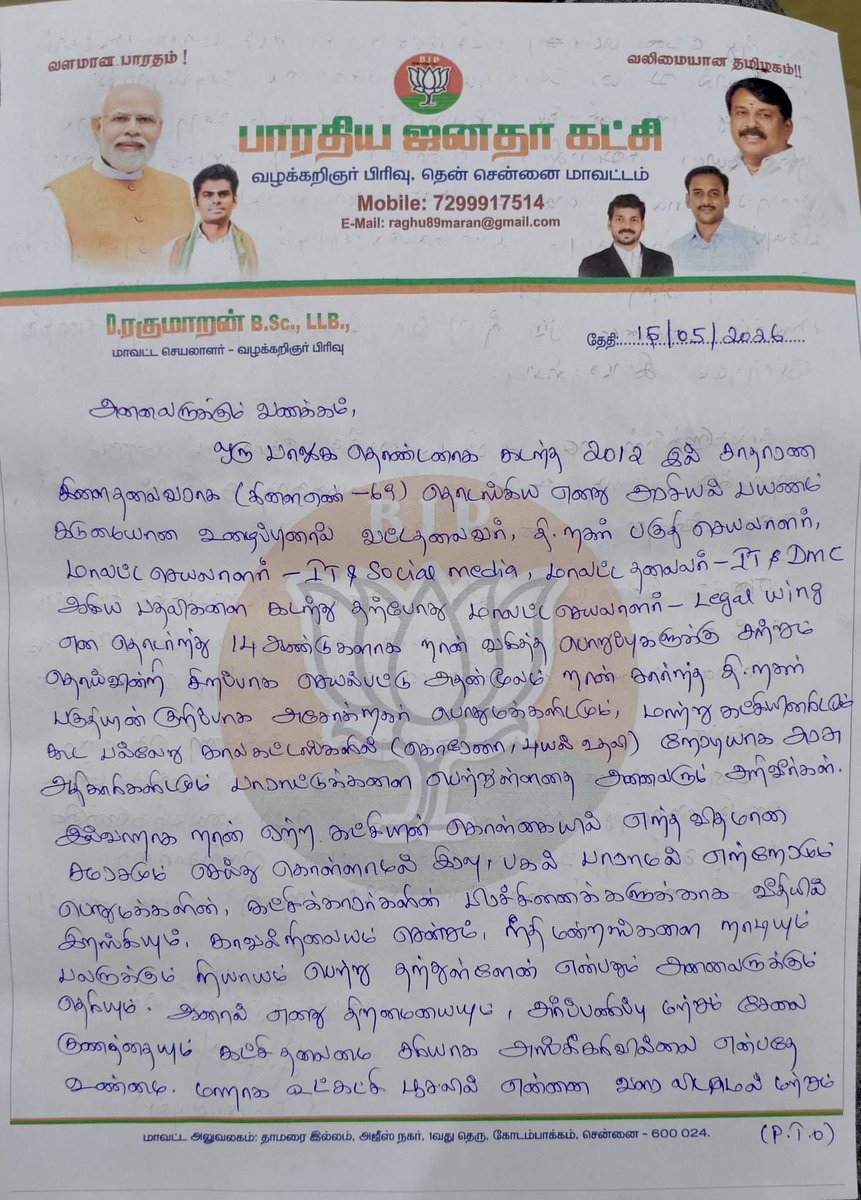 வளமான பாரதம் !
வலிமையான தமிழகம்!!
BJP
பாரதிய ஜனதா கட்சி
வழக்கறிஞர் பிரிவு, தென் சென்னை மாவட்டம்
Mobile: 7299917514
E-Mail: raghu89maran@gmail.com
D.ரகுமாறன் B.Sc., LLB.,
மாவட்ட செயலாளர் - வழக்கறிஞர் பிரிவு
தேதி: 15/05/2026
அனைவருக்கும் வணக்கம்,
ஒரு பாஜக தொண்டனாக கடந்த 2012 இல் சாதாரண
கிளைதலைவராக (கிளைஎண் -69) தொடங்கிய எனது அரசியல் பயணம்
கடுமையான உழைப்புனால் வட்டதலைவர், தி.நகர் பகுதி செயலாளர்,
மாவட்ட செயலாளர் - IT & Social media, மாவட்ட தலைவர் - IT & DMC
ஆகிய பதவிகளை கடந்து தற்போது மாவட்ட செயலாளர் - Legal wing
என தொடர்ந்து 14 ஆண்டுகளாக நான் வகித்த பொறுப்புகளுக்கு சற்றும்
தொய்வின்றி சிறப்பாக செயல்பட்டு அதன்மூலம் நான் சார்ந்த தி.நகர்
பகுதியின் குறிப்பாக அசோக்நகர் பொதுமக்களிடமும், மாற்று கட்சியினரிடமும்
கூட பல்வேறு காலகட்டங்களில் (கொரோனா, புயல் உதவி) நேரடியாக அரசு
அதிகாரிகளிடமும் பாராட்டுக்களை பெற்றுள்ளதை அனைவரும் அறிவீர்கள்.
இவ்வாறாக நான் ஏற்ற கட்சியின் கொள்கையில் எந்த விதமான
சமரசமும் செய்து கொள்ளாமல் இரவு, பகல் பாராமல் எந்நேரமும்
பொதுமக்களின், கட்சிக்காரர்களின் பிரச்சினைக்களுக்காக வீதியில்
இறங்கியும், காவல்நிலையம் சென்றும், நீதிமன்றங்களை நாடியும்
பலருக்கும் நியாயம் பெற்று தந்துள்ளேன் என்பதும் அனைவருக்கும்
தெரியும். ஆனால் எனது திறமையையும், அர்ப்பணிப்பு மற்றும் சேவை
குணத்தையும் கட்சி தலைமை சரியாக அங்கீகரிவில்லை என்பதே
உண்மை. மாறாக உட்கட்சி பூசலில் என்னை வளர விடாமல் மற்றும்
மாவட்ட அலுவலகம்: தாமரை இல்லம், அஜீஸ் நகர், 1வது தெரு, கோடம்பாக்கம், சென்னை - 600 024.
(P.T.O)